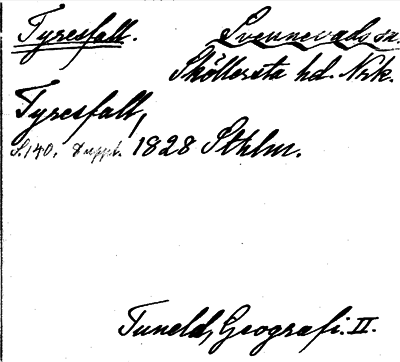 Tyresfall. Svennevads sn.
Sköllersta hd. Nrk.
Tyresfall,
S. 140. Suppl. 1828 Sthlm.
Tuneld, Geografi. II.